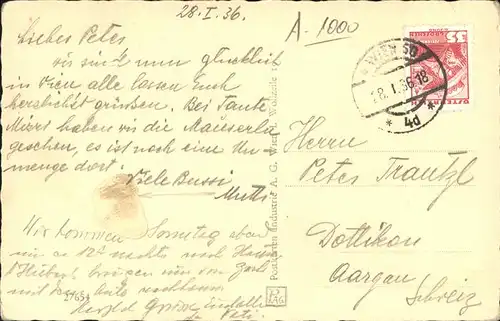 28.I.36.
A-1000
Liebes Peterl
wir sind nun glücklich
in Wien alle lassen Euch
herzlichst grüssen. Bei Tante
Mizzi haben wir die Mäuserln
gesehen, es ist noch eine Un-
menge dort.
Viele Bussi
Mutti
Wir kommen Sonntag abend
um 12h nachts nach Hause
bringen uns
mit dem Auto nachhause
Herzl.
Pati
2765
Postkarten Industrie A. G. Wien I. Wollzeile
PAG
WIEN 50
28.I.36.18
* 4d *
35
ÖSTERREICH
Herrn
Peter Trautzl
Dottikon
Aargau
Schweiz